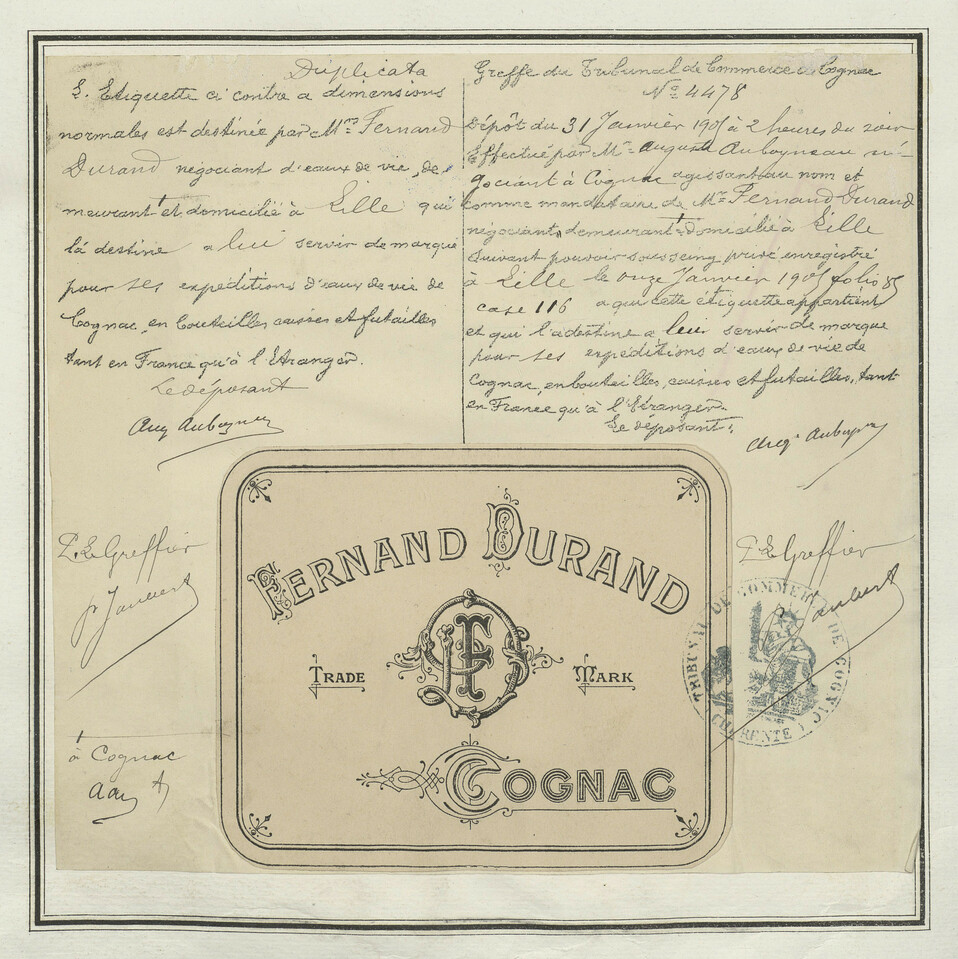 Duplicata
L'Etiquette ci contre a dimensions
normales est destinée par Mr Fernand
Durand négociant d'eaux de vie, de
meurant et domicilié à Lille qui
la destine a lui servir de marque
pour ses expéditions d'eaux de vie de
Cognac, en bouteilles caisses et futailles
tant en France qu'à l'Etranger.
Le déposant
Aug Auboyneau
P. Le Greffier
à Cognac
Greffe du Tribunal de Commerce de Cognac
No 4478
Dépôt du 31 Janvier 1905 à 2 heures du soir
Effectué par Mr Auguste Auboyneau né-
gociant à Cognac agissant au nom et
comme mandataire de Mr Fernand Durand
négociant, demeurant domicilié à Lille
suivant pouvoir sous seing privé enregistré
à Lille le onze Janvier 1905 folio 85
case 116 a qui cette étiquette appartient
et qui l'a destine a leur servir de marque
pour ses expéditions d'eaux de vie de
Cognac, en bouteilles, caisses et futailles, tant
en France, qu'à l'Etranger.
Le déposant:
Augte Auboyneau
P. Le Greffier
FERNAND DURAND
TRADE MARK
FD
COGNAC
TRIBUNAL DE COMMERCE DE COGNAC
CHARENTE